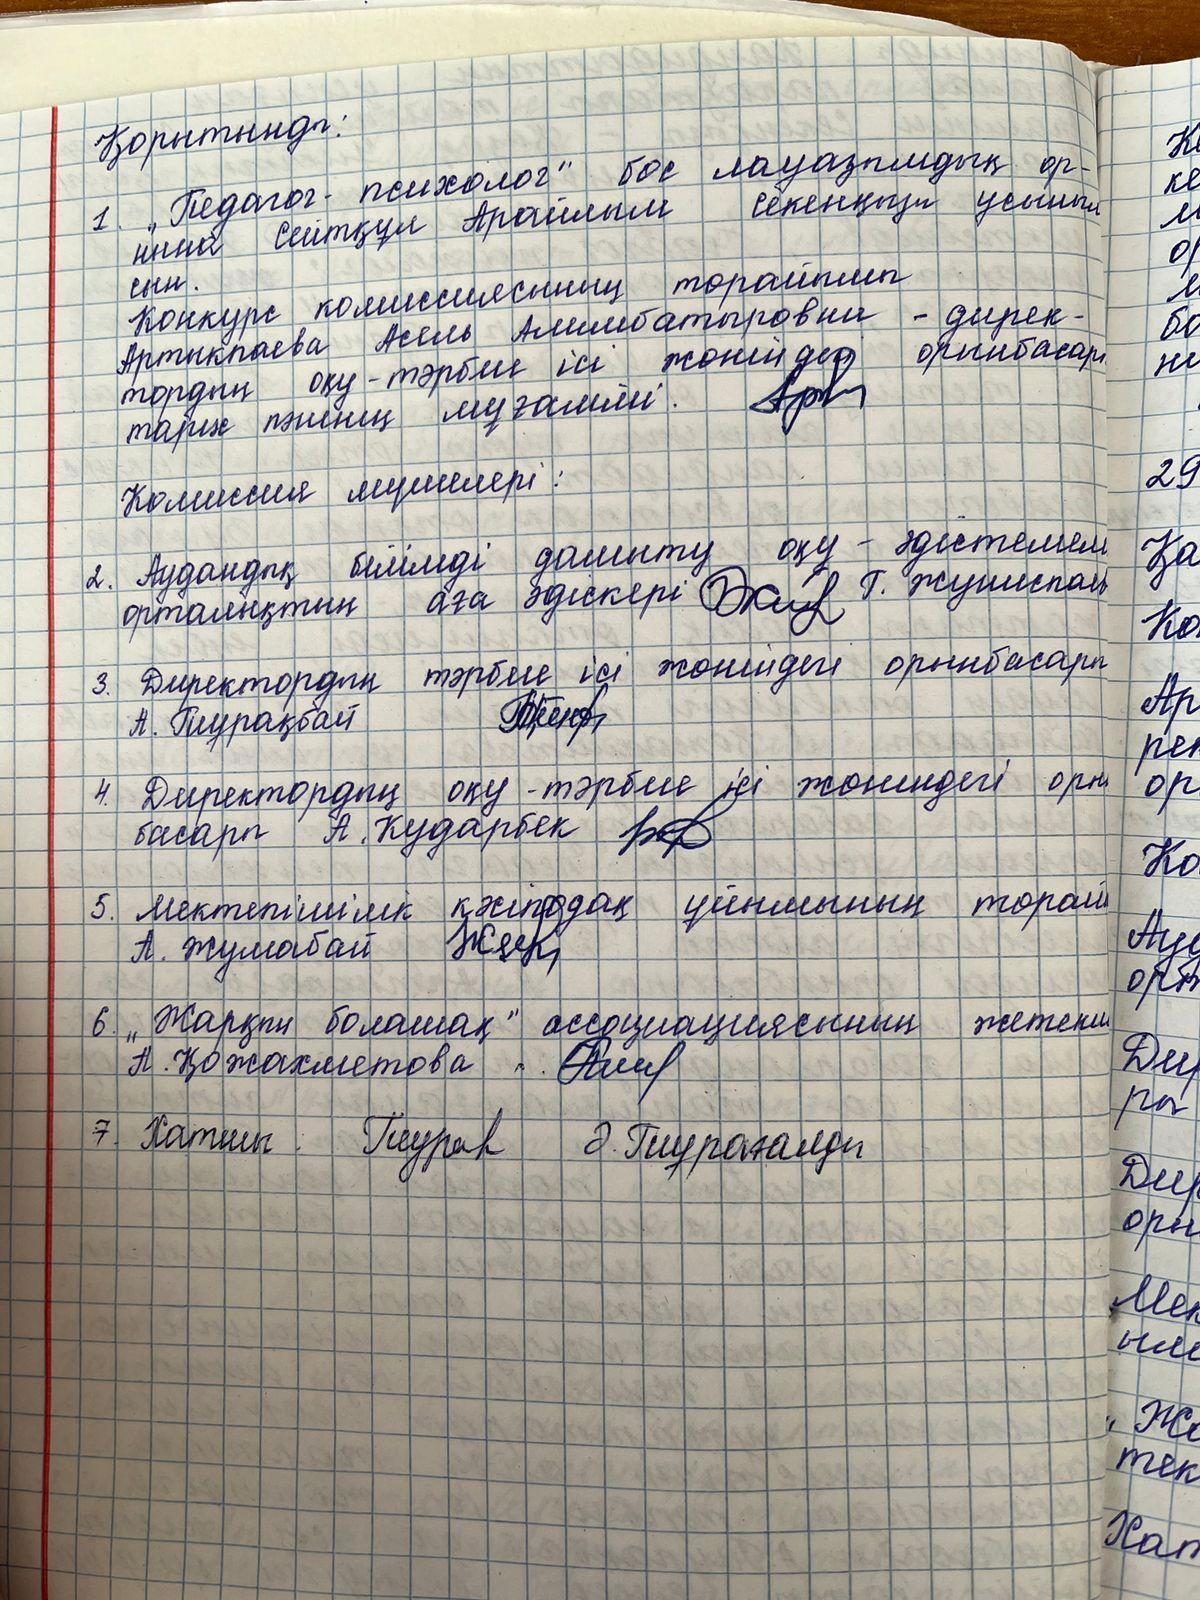 Қорытынды:
1. „Педагог-психолог" бос лауазымдық ор-
нына Сейтқұл Арайлым Секенқызы ұсыныл
сын.
Конкурс комиссиясының торайымы
Артыкпаева Асель Алимбатыровна - дирек-
тордың оқу-тәрбие ісі жөніндегі орынбасары
тарих пәнінің мұғалімі.
Комиссия мүшелері:
2. Аудандық білімді дамыту оқу-әдістемелі
орталықтың аға әдіскері Г. Жуниспае
3. Директордың тәрбие ісі жөніндегі орынбасары
А. Тұрақбай
4. Директордың оқу-тәрбие ісі жөніндегі орын
басары А. Құдарбек
5. Мектепішілік кәсіподақ ұйымының торайы
А. Жумабай
6. „Жарқын болашақ" ассоциациясының жетекші
А. Қожахметова
7. Хатшы: Ә. Тұрағалды
Ке
ке
ор
бо
29
Қа
Ко
Ар
рек
ор
Ко
Ауд
орт
Дир
ры
Дир
оры
Мек
„Жа
тек
Хат